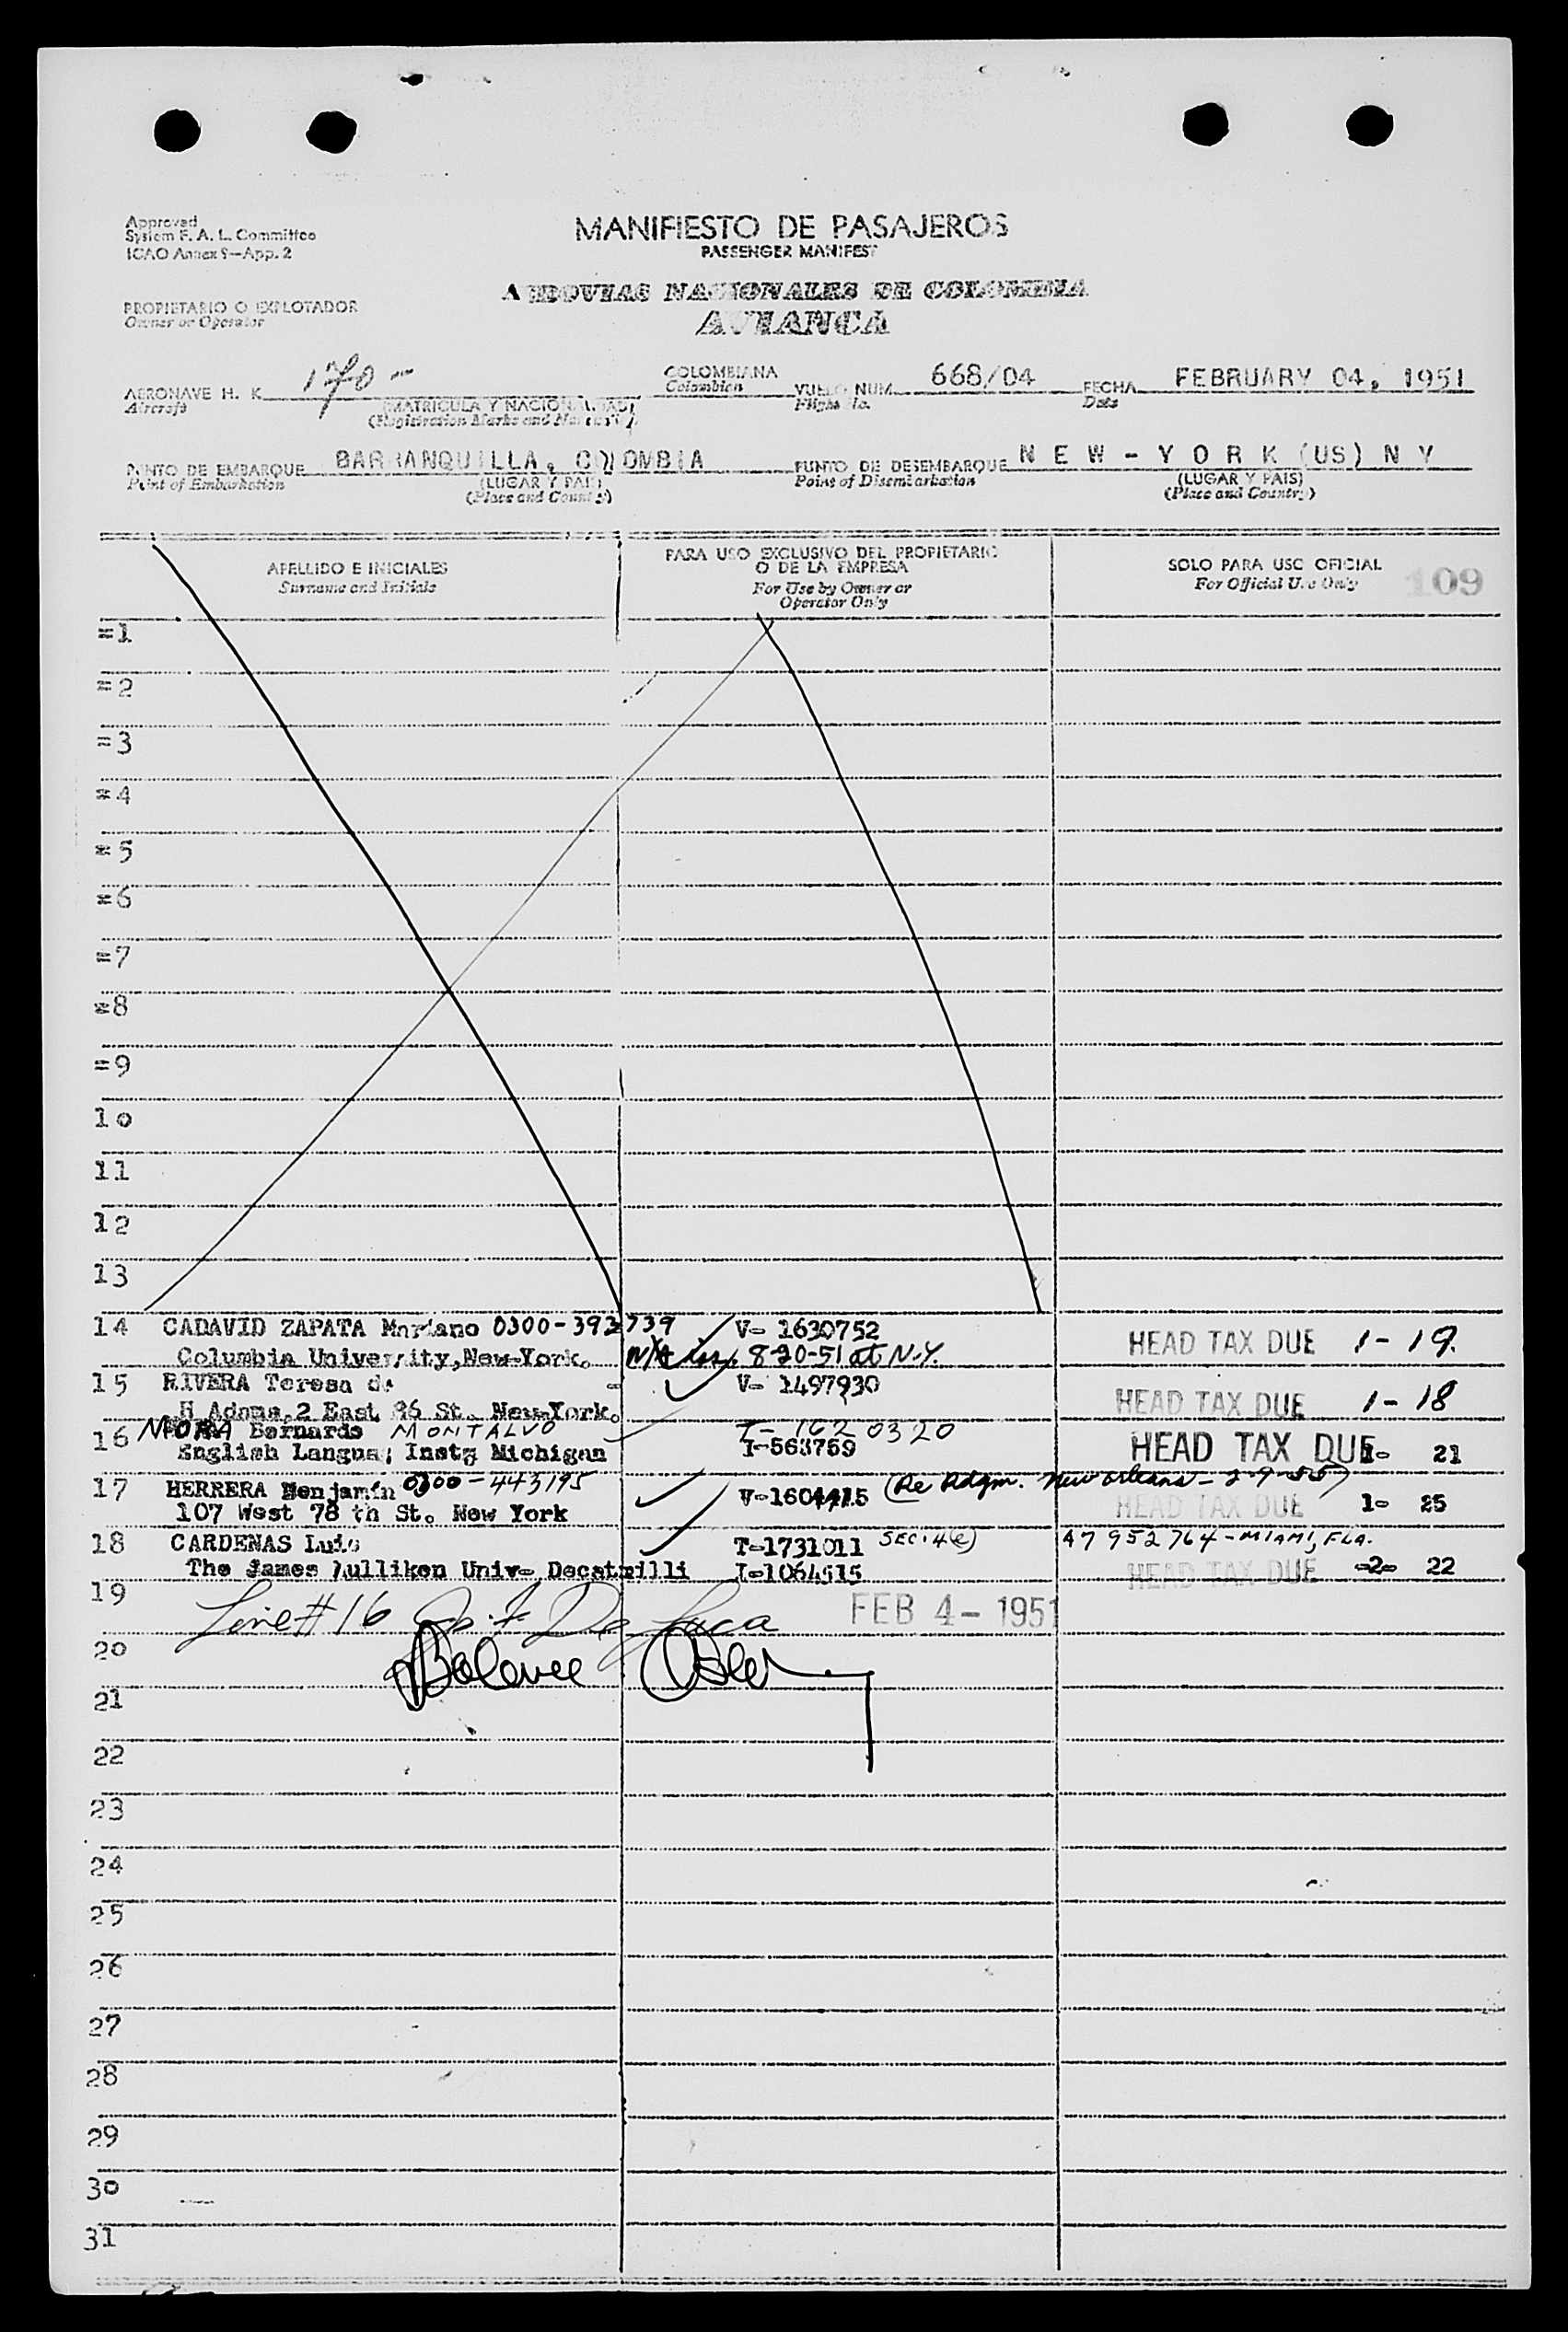 Approved
System F. A. L. Committee
ICAO Annex 9—App. 2
MANIFIESTO DE PASAJEROS
PASSENGER MANIFEST
AEROVIAS NACIONALES DE COLOMBIA
AVIANCA
PROPIETARIO O EXPLOTADOR
Owner or Operator
AERONAVE H. K. 170 -
Aircraft
(MATRICULA Y NACIONALIDAD)
(Registration Marks and Nationality)
COLOMBIANA
Colombian
VUELO NUM. 668/04
Flight No.
FECHA FEBRUARY 04, 1951
Date
PUNTO DE EMBARQUE BARRANQUILLA, COLOMBIA
Point of Embarkation
(LUGAR Y PAIS)
(Place and Country)
PUNTO DE DESEMBARQUE NEW-YORK (US) NY
Point of Disembarkation
(LUGAR Y PAIS)
(Place and Country)
APELLIDO E INICIALES
Surname and Initials
PARA USO EXCLUSIVO DEL PROPIETARIO
O DE LA EMPRESA
For Use by Owner or
Operator Only
SOLO PARA USO OFICIAL
For Official Use Only
109
=1
=2
=3
=4
=5
=6
=7
=8
=9
10
11
12
13
14 CADAVID ZAPATA Mariano 0300-392739 V- 1630752 HEAD TAX DUE 1-19.
Columbia University, New-York. 8-20-51 at N.Y.
15 RIVERA Teresa de V- 1497930 HEAD TAX DUE 1-18
H Adams, 2 East 86 St. New-York.
16 MORA Bernardo MONTALVO T- 1620320
English Langua; Inst; Michigan I-563759 HEAD TAX DUE 1- 21
17 HERRERA Benjamín 0300-443195 V-1604415 (Re Adgm. New Orleans - 2-9-55)
107 West 78 th St. New York HEAD TAX DUE 1- 25
18 CARDENAS Luis T-1731011 SEC. 4(e) A7 952 764 - MIAMI, FLA.
The James Mulliken Univ- Decatrilli I-1064515 HEAD TAX DUE -2- 22
19 Line # 16 De Luca FEB 4 - 1951
20 Balance
21
22
23
24
25
26
27
28
29
30
31